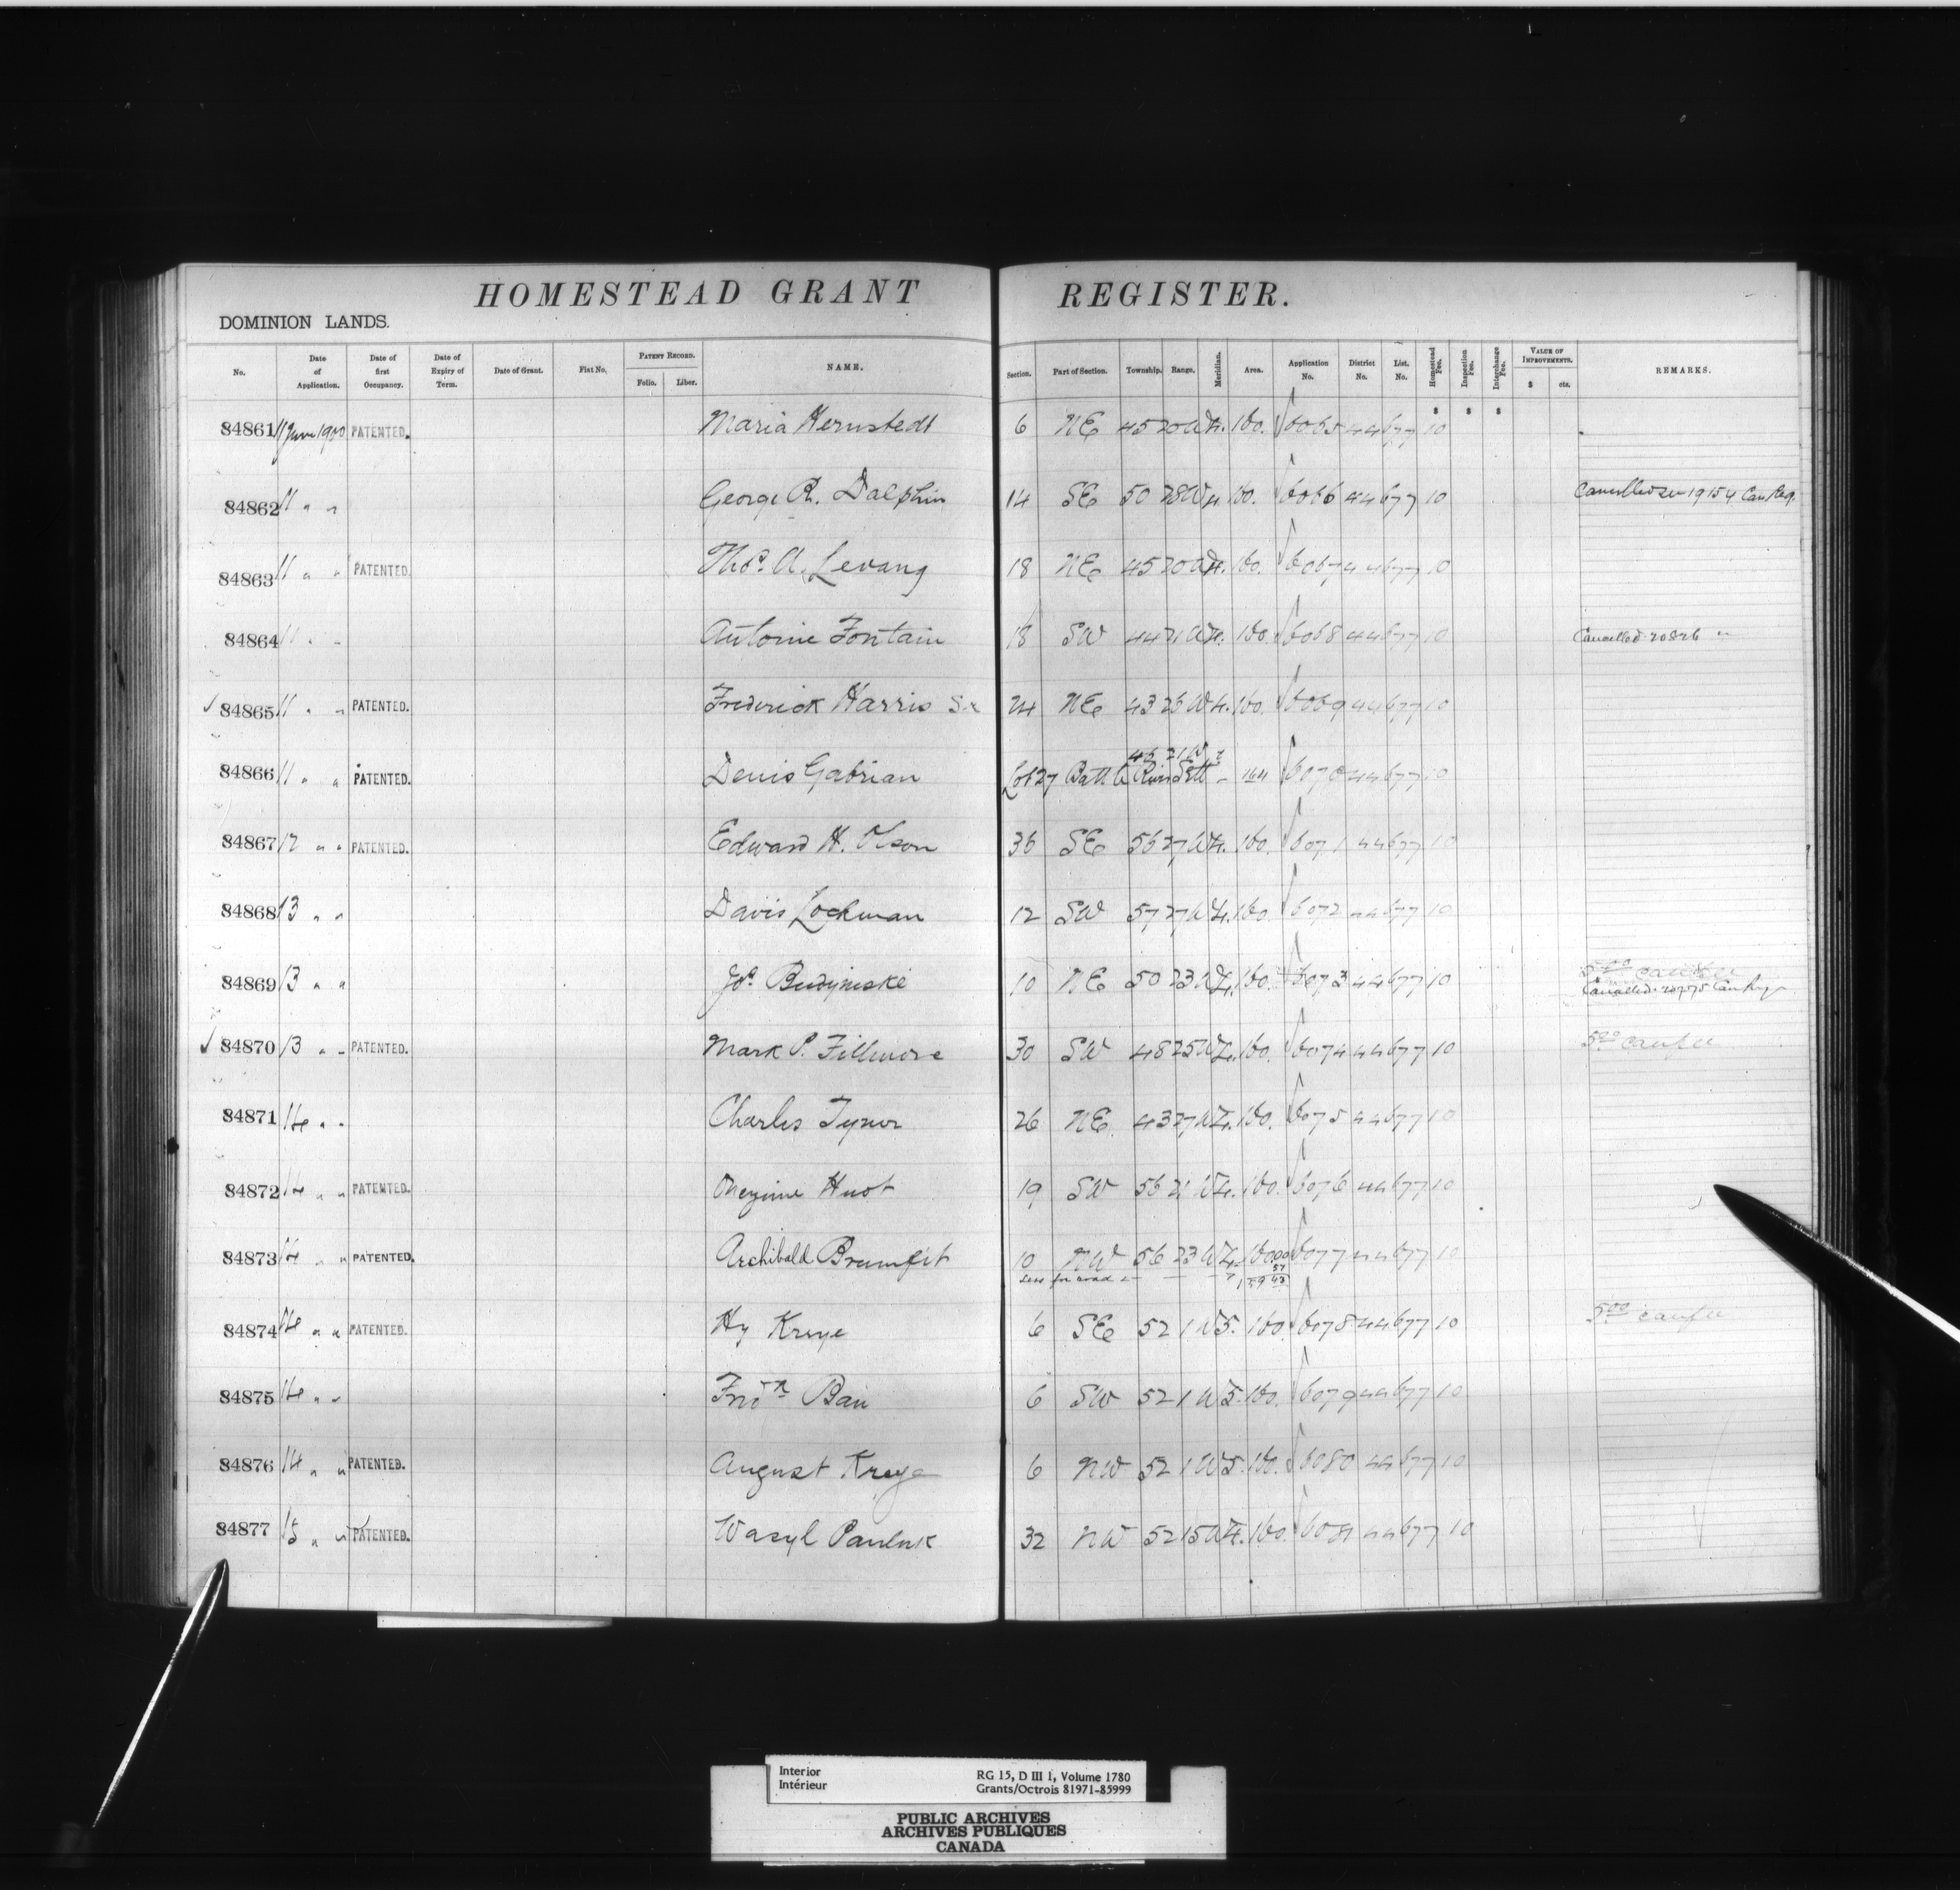 HOMESTEAD GRANT REGISTER.
DOMINION LANDS.
No. Date of Application. Date of first Occupancy. Date of Expiry of Term. Date of Grant. Fiat No. PATENT RECORD. Folio. Liber. NAME. Section. Part of Section. Township. Range. Meridian. Area. Application No. District No. List. No. Homestead Fee. Inspection Fee. Interchange Fee. VALUE OF IMPROVEMENTS. $ cts. REMARKS.
$ $ $
84861 11 June 1900 PATENTED. Maria Hernstedt 6 NE 45 20 W 4. 160. 6065 44 677 10
84862 11 " " George R. Dalphin 14 SE 50 28 W 4. 160. 6066 44 677 10 Cancelled see 19154 Can Reg.
84863 11 " " PATENTED. Thos. A. Levang 18 NE 45 20 W 4. 160. 6067 44 677 10
84864 11 " " Antoine Fontain 18 SW 44 21 W 4. 160. 6068 44 677 10 Cancelled 20826 "
✓ 84865 11 " " PATENTED. Frederick Harris Sr 24 NE 43 26 W 4. 160. 6069 44 677 10
46 21 W
84866 11 " " PATENTED. Denis Gabrian Lot 27 Battle River Sett - 164 6070 44 677 10
84867 12 " " PATENTED. Edward H. Olson 36 SE 56 27 W 4. 160. 6071 44 677 10
84868 13 " " Davis Lockman 12 SW 57 27 W 4. 160. 6072 44 677 10
5.00 can fee
84869 13 " " Jos. Budzinske 10 NE 50 23 W 4. 160. 6073 44 677 10 Cancelled 20775 Can Reg
✓ 84870 13 " " PATENTED. Mark P. Fillmore 30 SW 48 25 W 4. 160. 6074 44 677 10 5.00 can fee
84871 14 " " Charles Tynor 26 NE 43 27 W 4. 160. 6075 44 677 10
84872 14 " " PATENTED. Onezime Huot 19 SW 56 21 W 4. 160. 6076 44 677 10
84873 14 " " PATENTED. Archibald Brumfit 10 NW 56 23 W 4. 160.00 6077 44 677 10
Less for road 57
159 43
84874 14 " " PATENTED. Hy Kreye 6 SE 52 1 W 5. 160. 6078 44 677 10 5.00 can fee
84875 14 " " Fred'k Bain 6 SW 52 1 W 5. 160. 6079 44 677 10
84876 14 " " PATENTED. August Kreye 6 NW 52 1 W 5. 160. 6080 44 677 10
84877 15 " " PATENTED. Wasyl Pauluk 32 NW 52 15 W 4. 160. 6081 44 677 10
Interior RG 15, D III 1, Volume 1780
Intérieur Grants/Octrois 81971-85999
PUBLIC ARCHIVES
ARCHIVES PUBLIQUES
CANADA